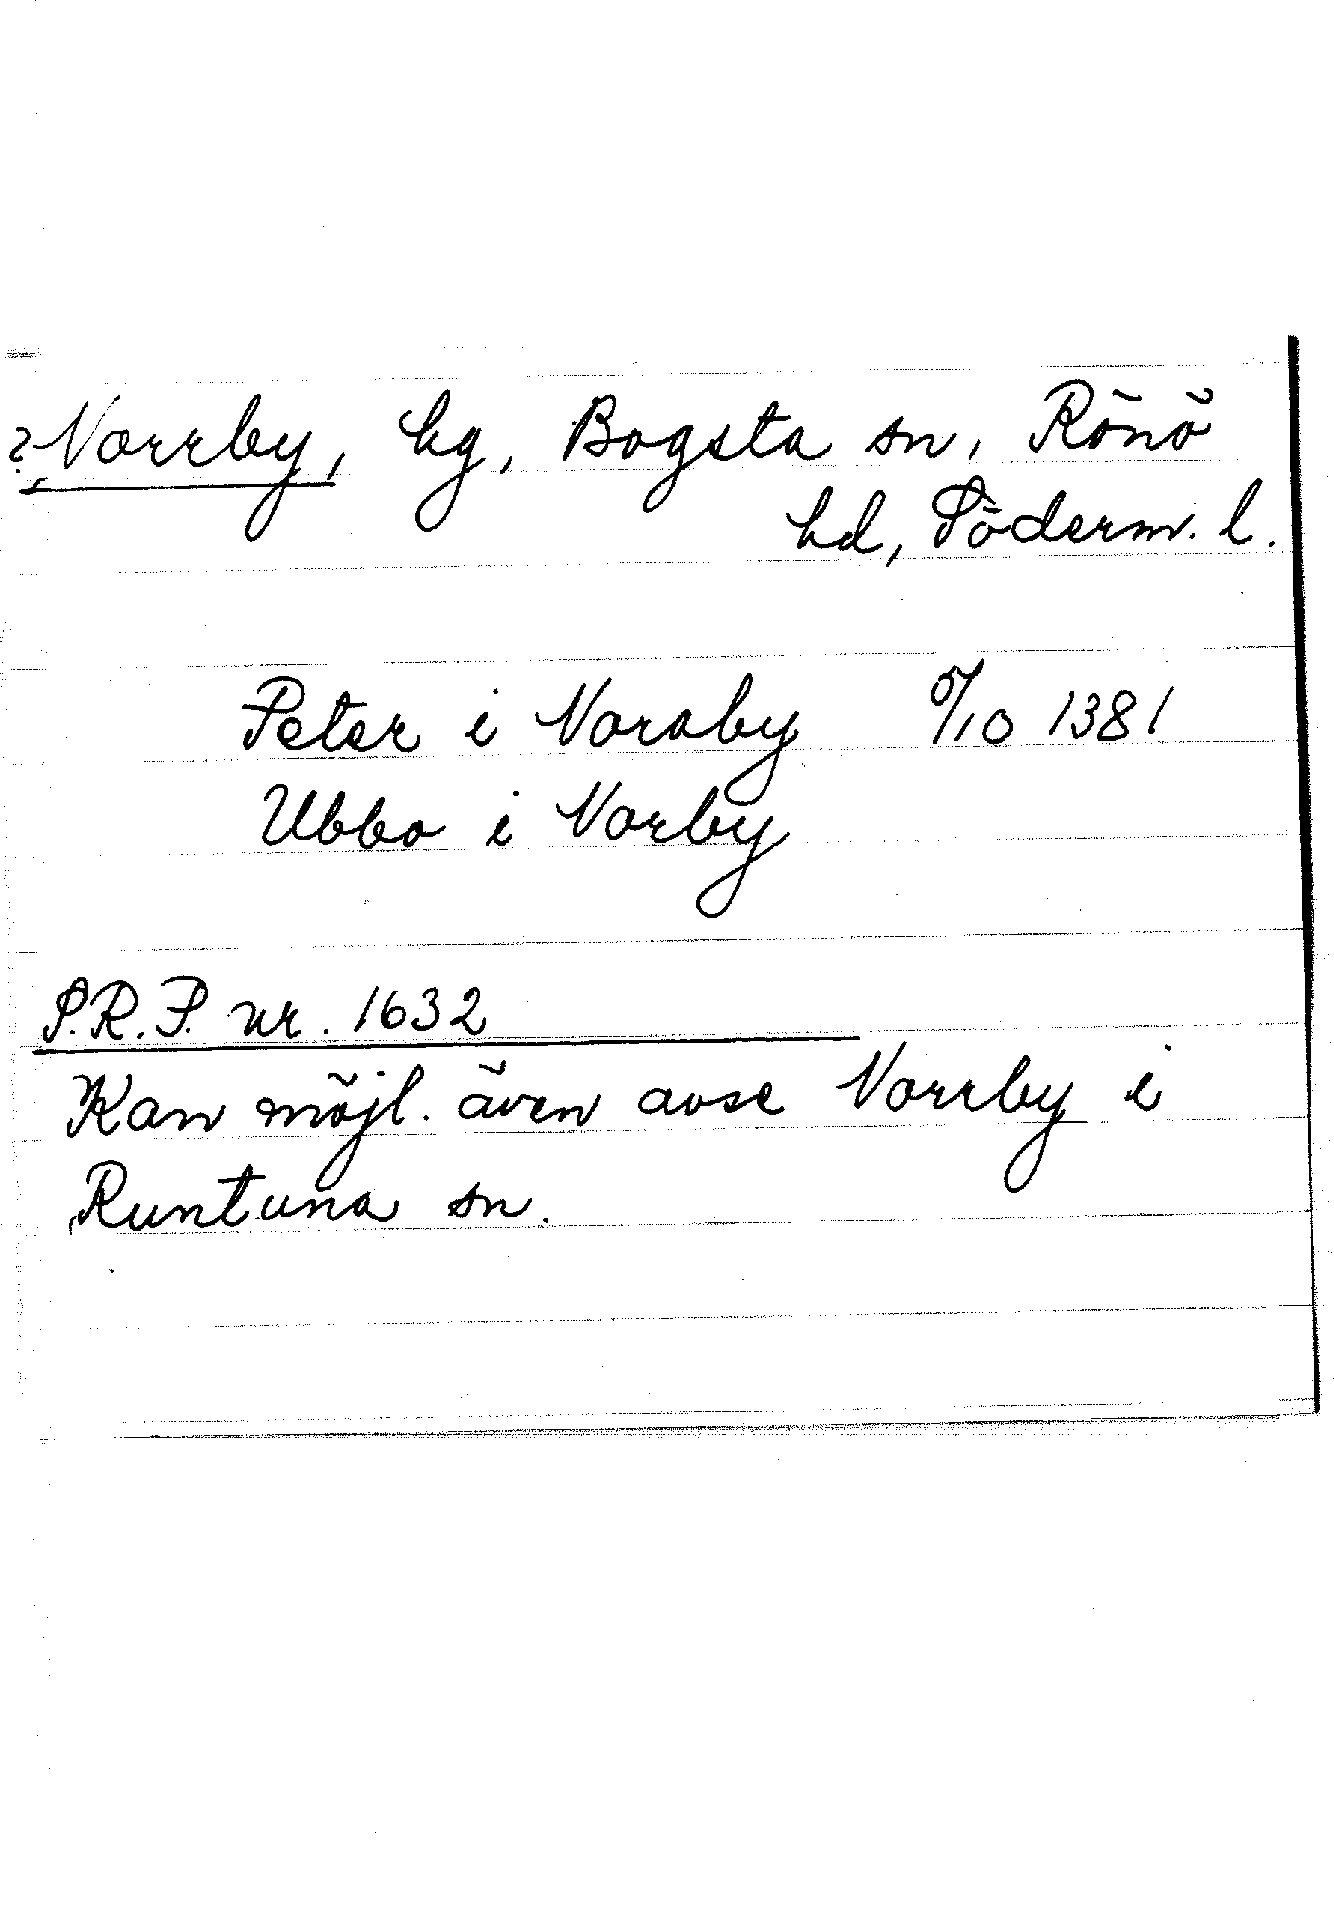 ? Norrby, hg, Bogsta sn, Rönö
hd, Söderm. l.
Peter i Noraby 9/10 1381
Ubbo i Norby
S.R.P. nr. 1632
Kan möjl. även avse Norrby i
Runtuna sn.